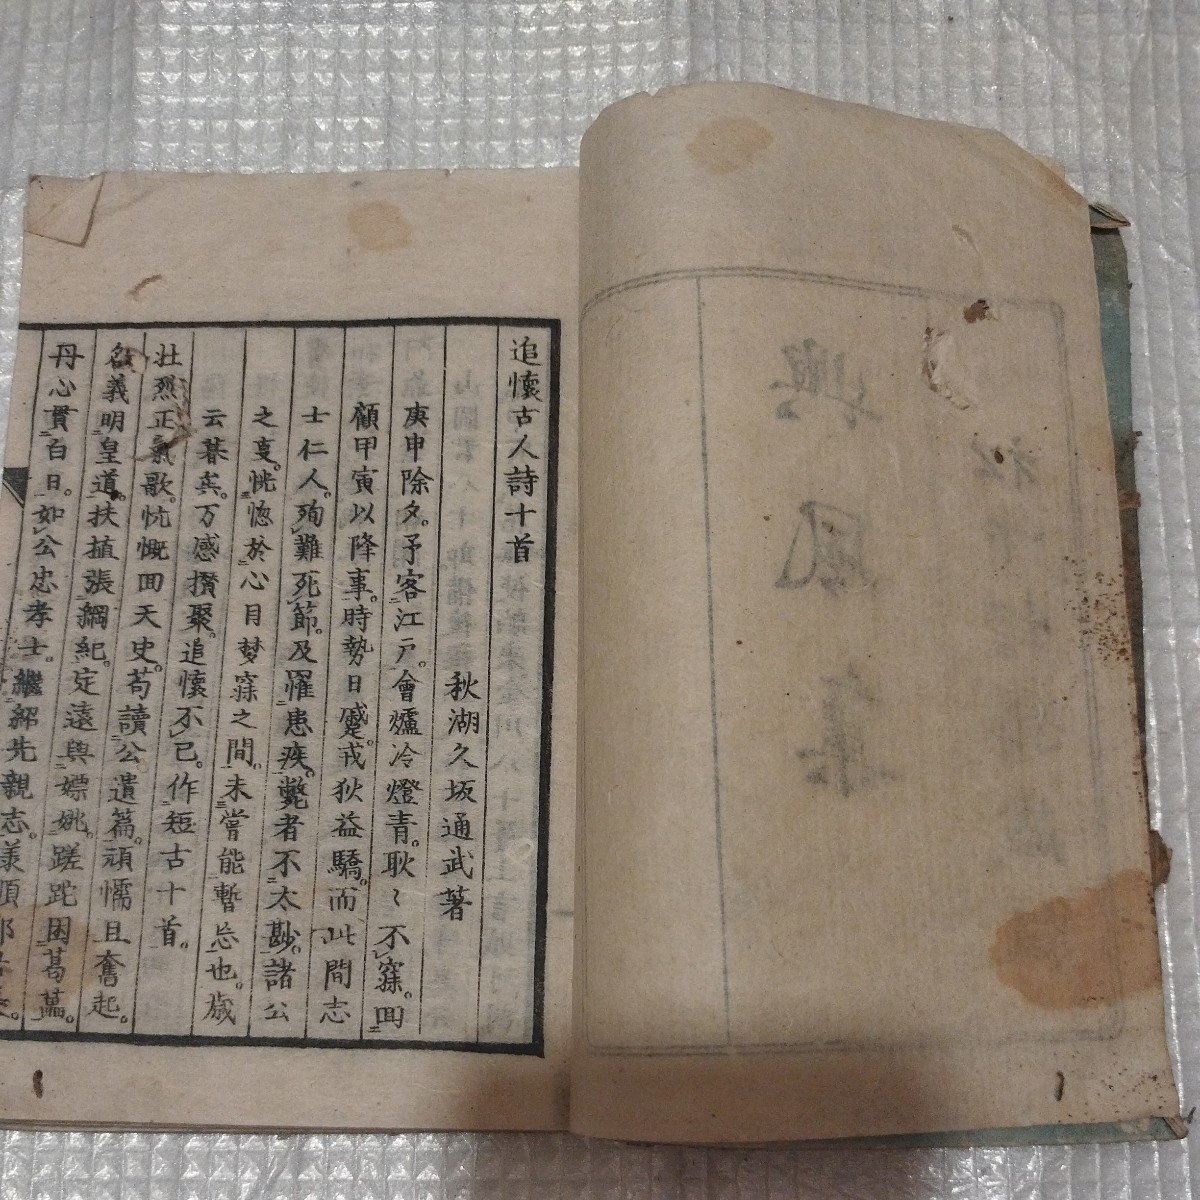 興風集
追懷古人詩十首
秋湖久坂通武著
庚申除夕。予客江戸。會爐冷燈青。耿〻不寐。回
顧甲寅以降事。時勢日蹙。戎狄益驕。而此間志
士仁人。殉難死節。及罹患疾斃者不太尠。諸公
之㕝。恍惚於心目梦寐之間。未嘗能暫忘也。歳
云暮矣。万感攅聚。追懷不已。作短古十首。
壮烈正氣歌。忼慨回天史。苟讀公遺篇。頑懦且奮起。
名義明皇道。扶植張綱紀。定遠與嫖姚。蹉跎困葛藟。
丹心貫白日。如公忠孝士。繼紹先親志。